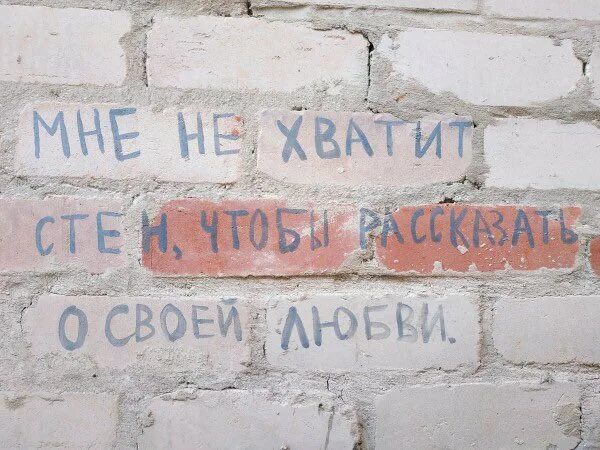 МНЕ НЕ ХВАТИТ
СТЕН, ЧТОБЫ РАССКАЗАТЬ
О СВОЕЙ ЛЮБВИ.